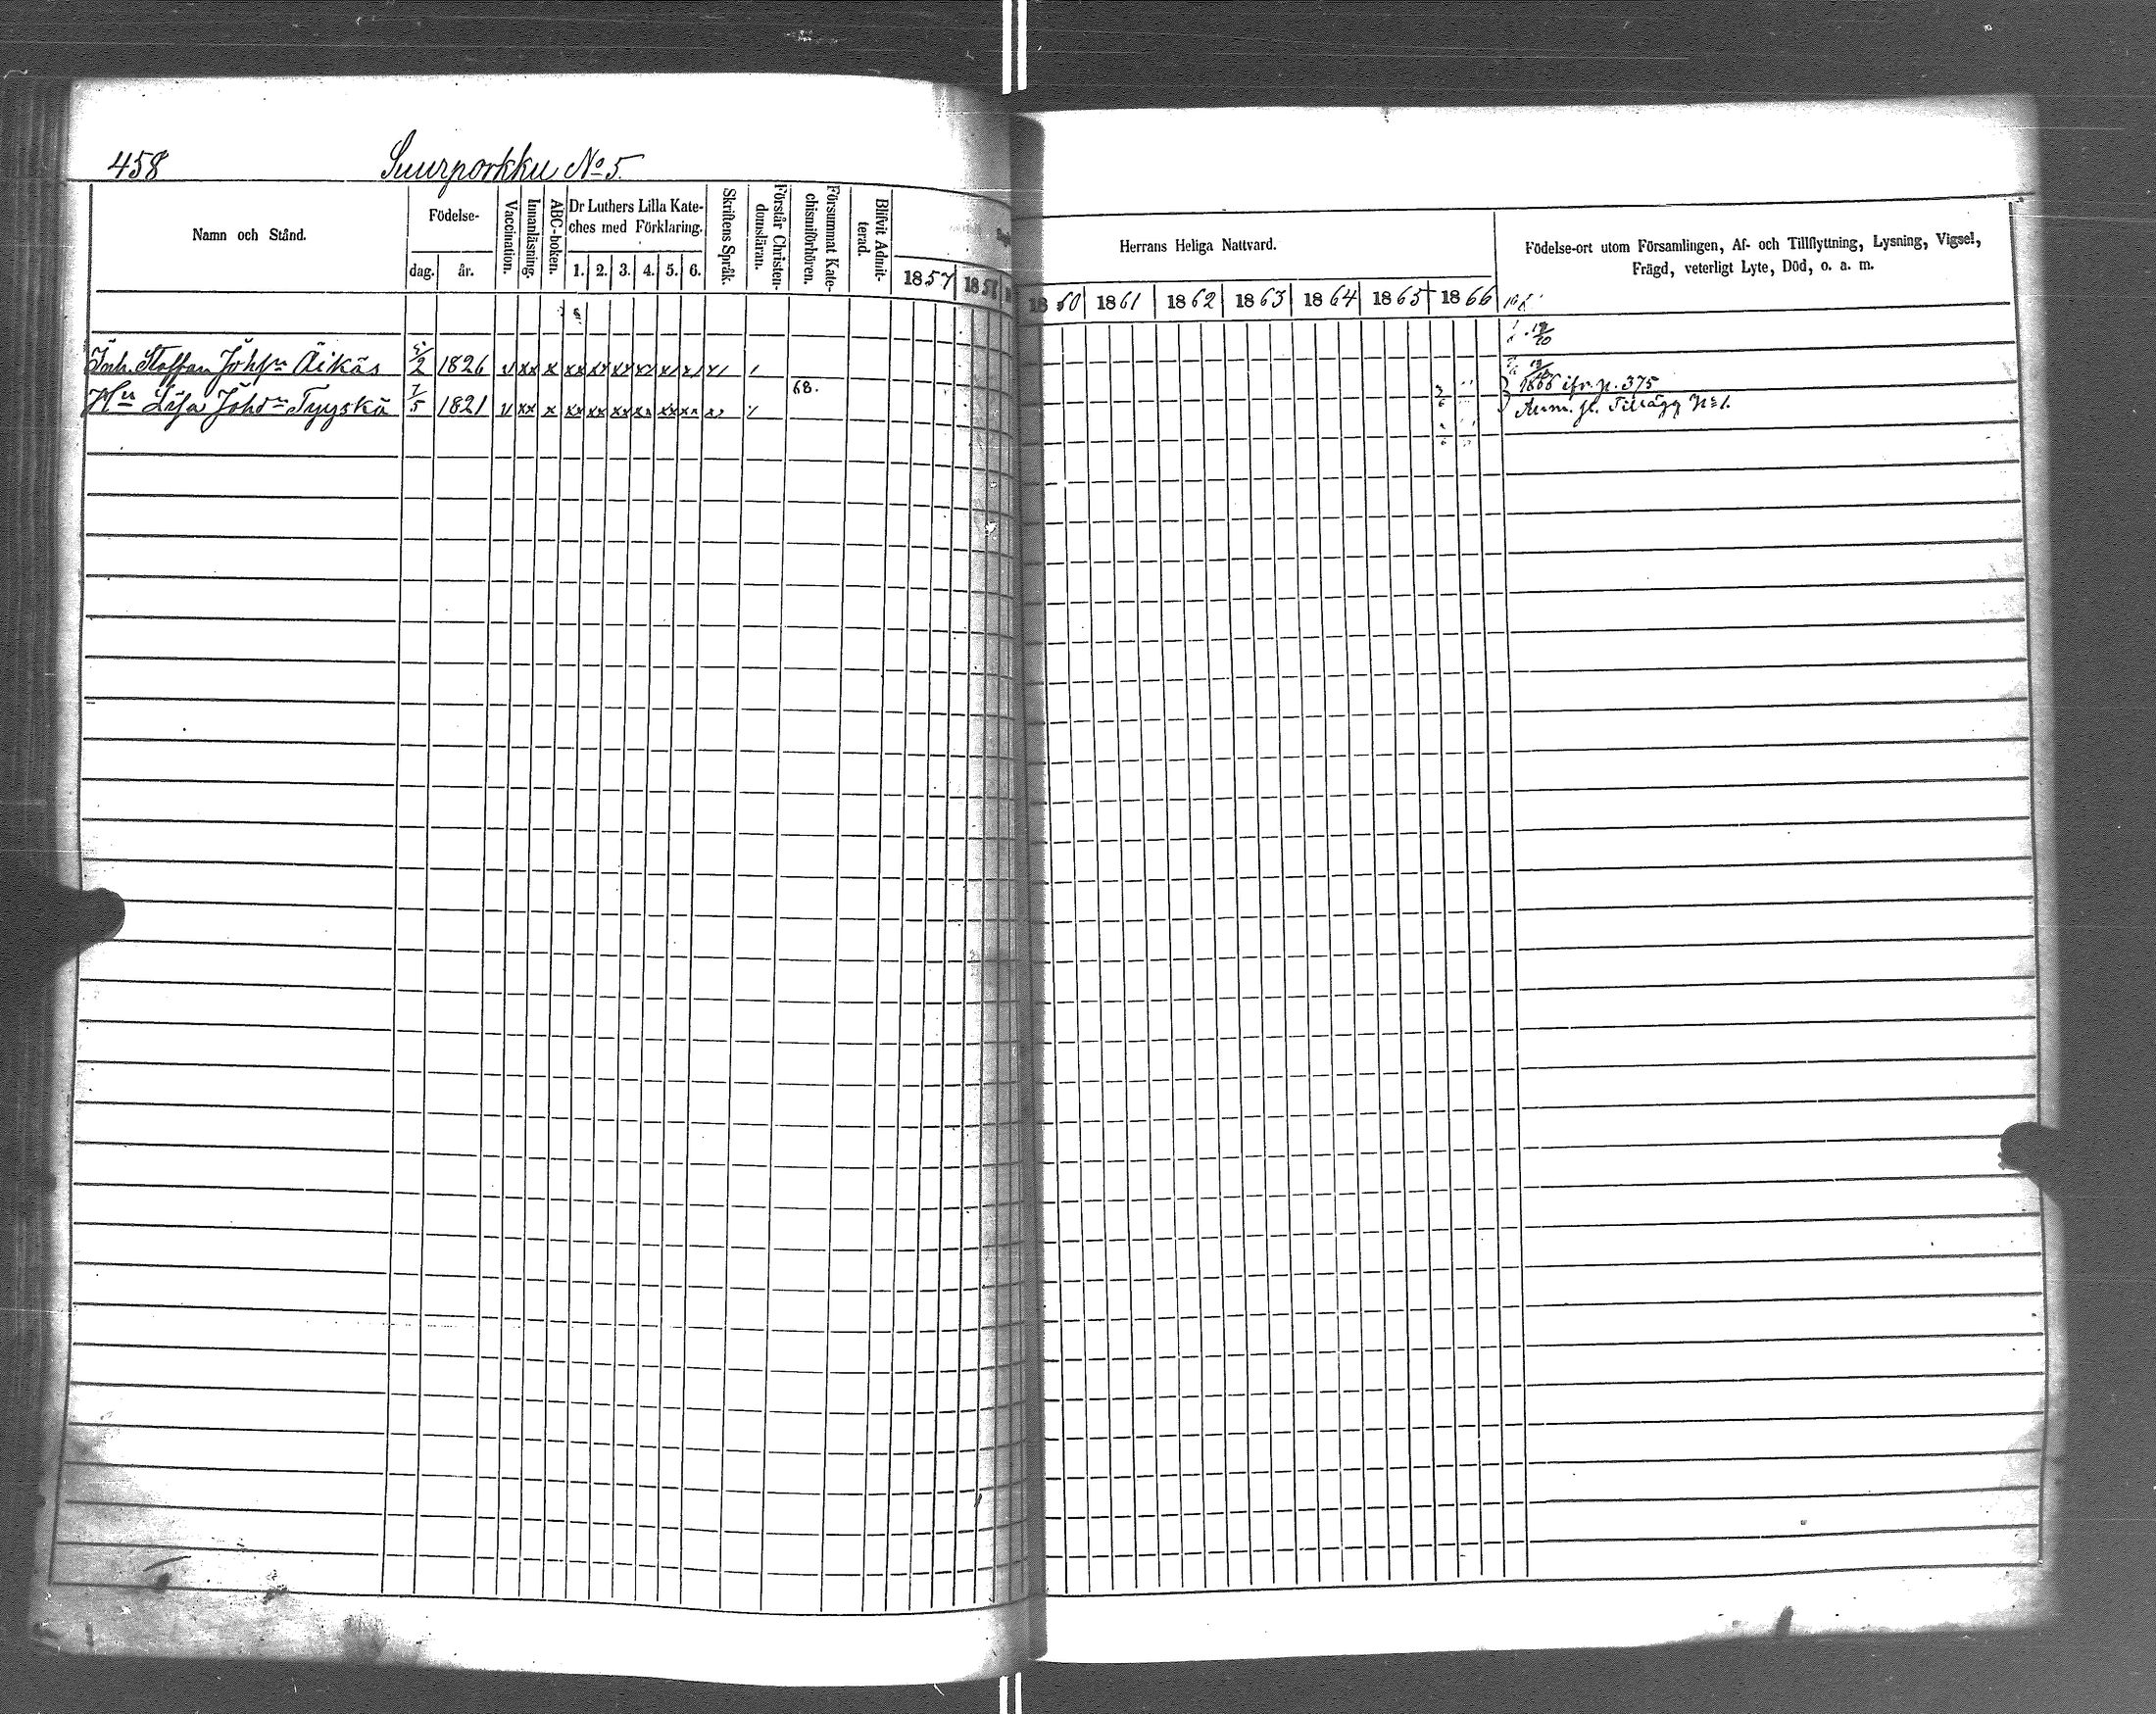 458 Suurporkku No 5.
Namn och Stånd.
Födelse-
dag. år.
Vaccination.
Innanläsning.
ABC-boken.
Dr Luthers Lilla Kate-
ches med Förklaring.
1. 2. 3. 4. 5. 6.
Skriftens Språk.
Förstår Christen-
domsläran.
Försummat Kate-
chismiförhören.
Blifvit Admit-
terad.
1857 1858
Herrans Heliga Nattvard.
1860 1861 1862 1863 1864 1865 1866
Födelse-ort utom Församlingen, Af- och Tillflyttning, Lysning, Vigsel,
Frägd, veterligt Lyte, Död, o. a. m.
Inh. Staffan Johsn Äikäs 5/2 1826 v xx x xx xx xx xx
1866 ifr. p. 375
68.
Hu Lisa Johdr Tyyskä 7/5 1821 v xx x xx xx xx xx xx xx
Anm. fl. Tillägg No 1.